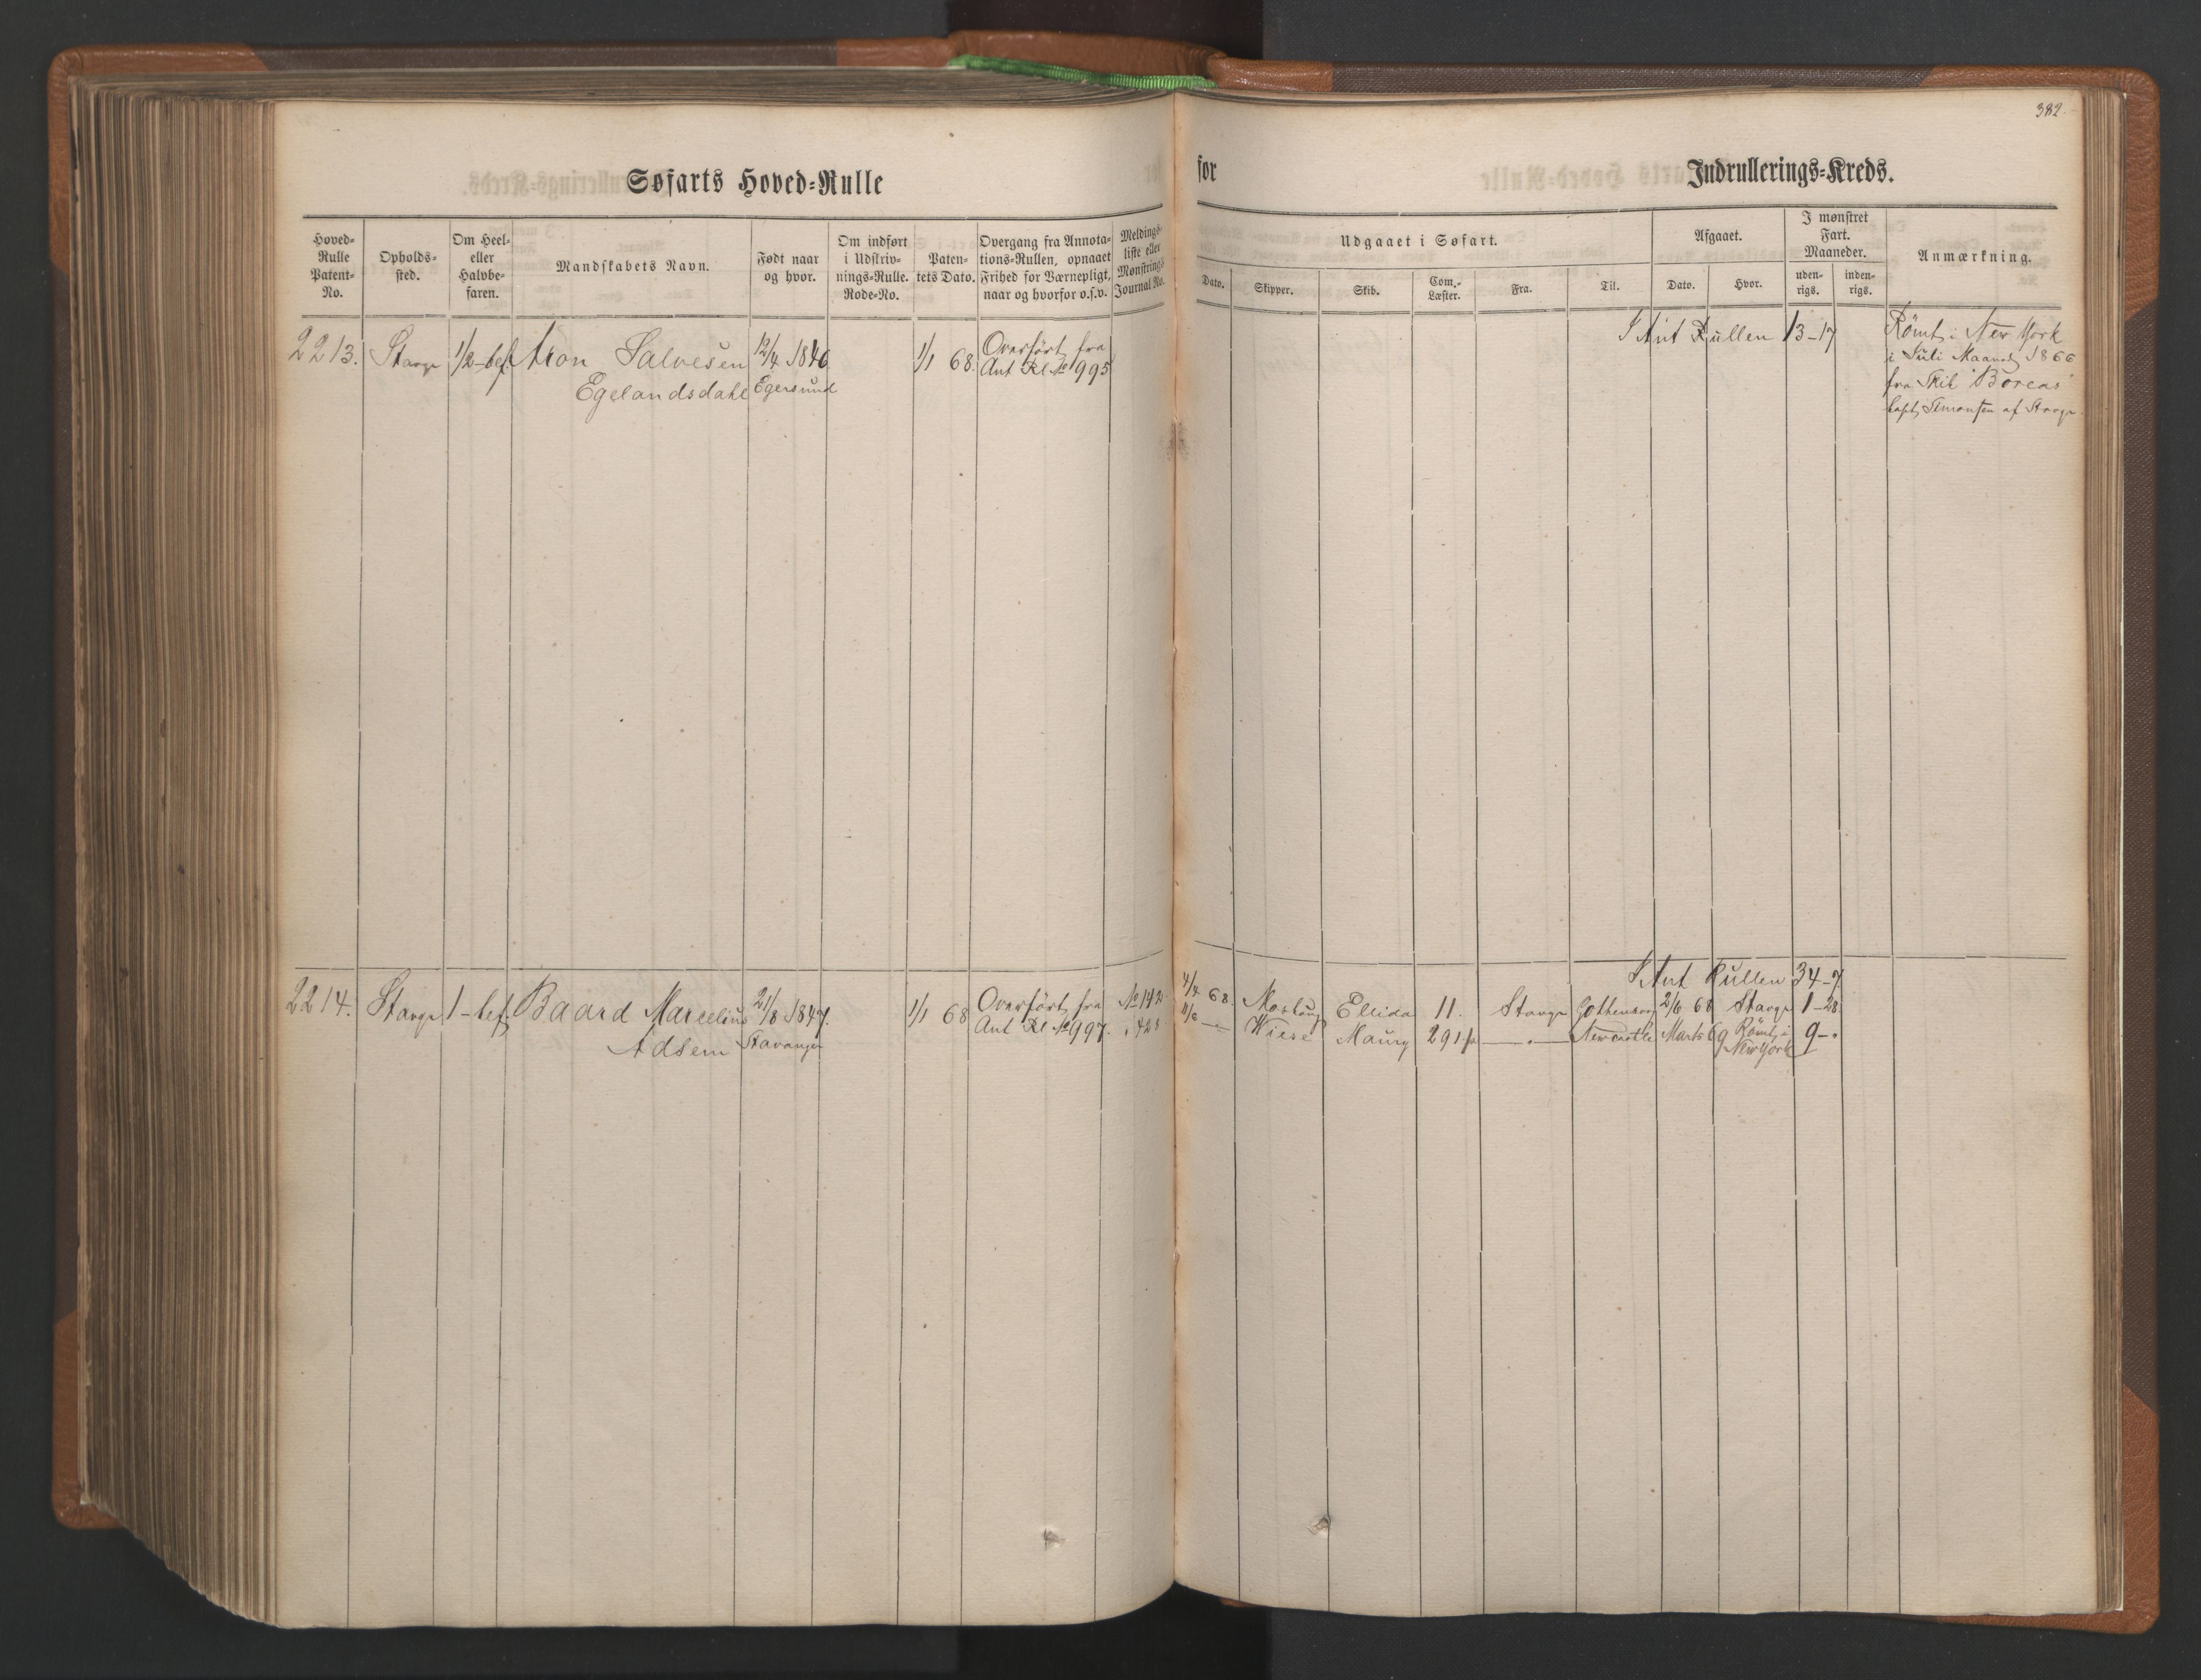 382.
Søfarts Hoved=Rulle
for Indrullerings=Kreds.
Hoved=Rulle Patent=No.
Opholds=sted.
Om Heel= eller Halvbe=faren.
Mandskabets Navn.
Født naar og hvor.
Om indført i Udskriv=nings=Rulle. Rode=No.
Paten=tets Dato.
Overgang fra Annota=tions=Rullen, opnaaet Frihed for Værnepligt, naar og hvorfor o.s.v.
Meldings=liste eller Mønstrings Journal No.
Udgaaet i Søfart.
Dato.
Skipper.
Skib.
Com.=Læster.
Fra.
Til.
Afgaaet.
Dato.
Hvor.
I mønstret Fart. Maaneder.
uden=rigs.
inden=rigs.
Anmærkning.
2213. Stavgr 1/2-bef. Aron Salvesen 12/4 1846 1/1 68. Overført fra
Egelandsdahl Egersund Ant Rl No 995
I Ant Rullen 13-17
Römt i New York
i Juli Maaned 1866
fra Skib "Boreas"
Capt Simonsen af Stavgr
2214. Stavgr 1-bef. Baard Marcelius 21/8 1847. 1/1 68 Overført fra
Adsem Stavanger Ant Rl No 997.
I Ant Rullen 34-7
68. Ellida 11. Stavgr Gothenborg 2/6 68 Stavgr 1-28
Wiese Maury 291 — " — Newcastle Marts 69 Römt i New York 9-"